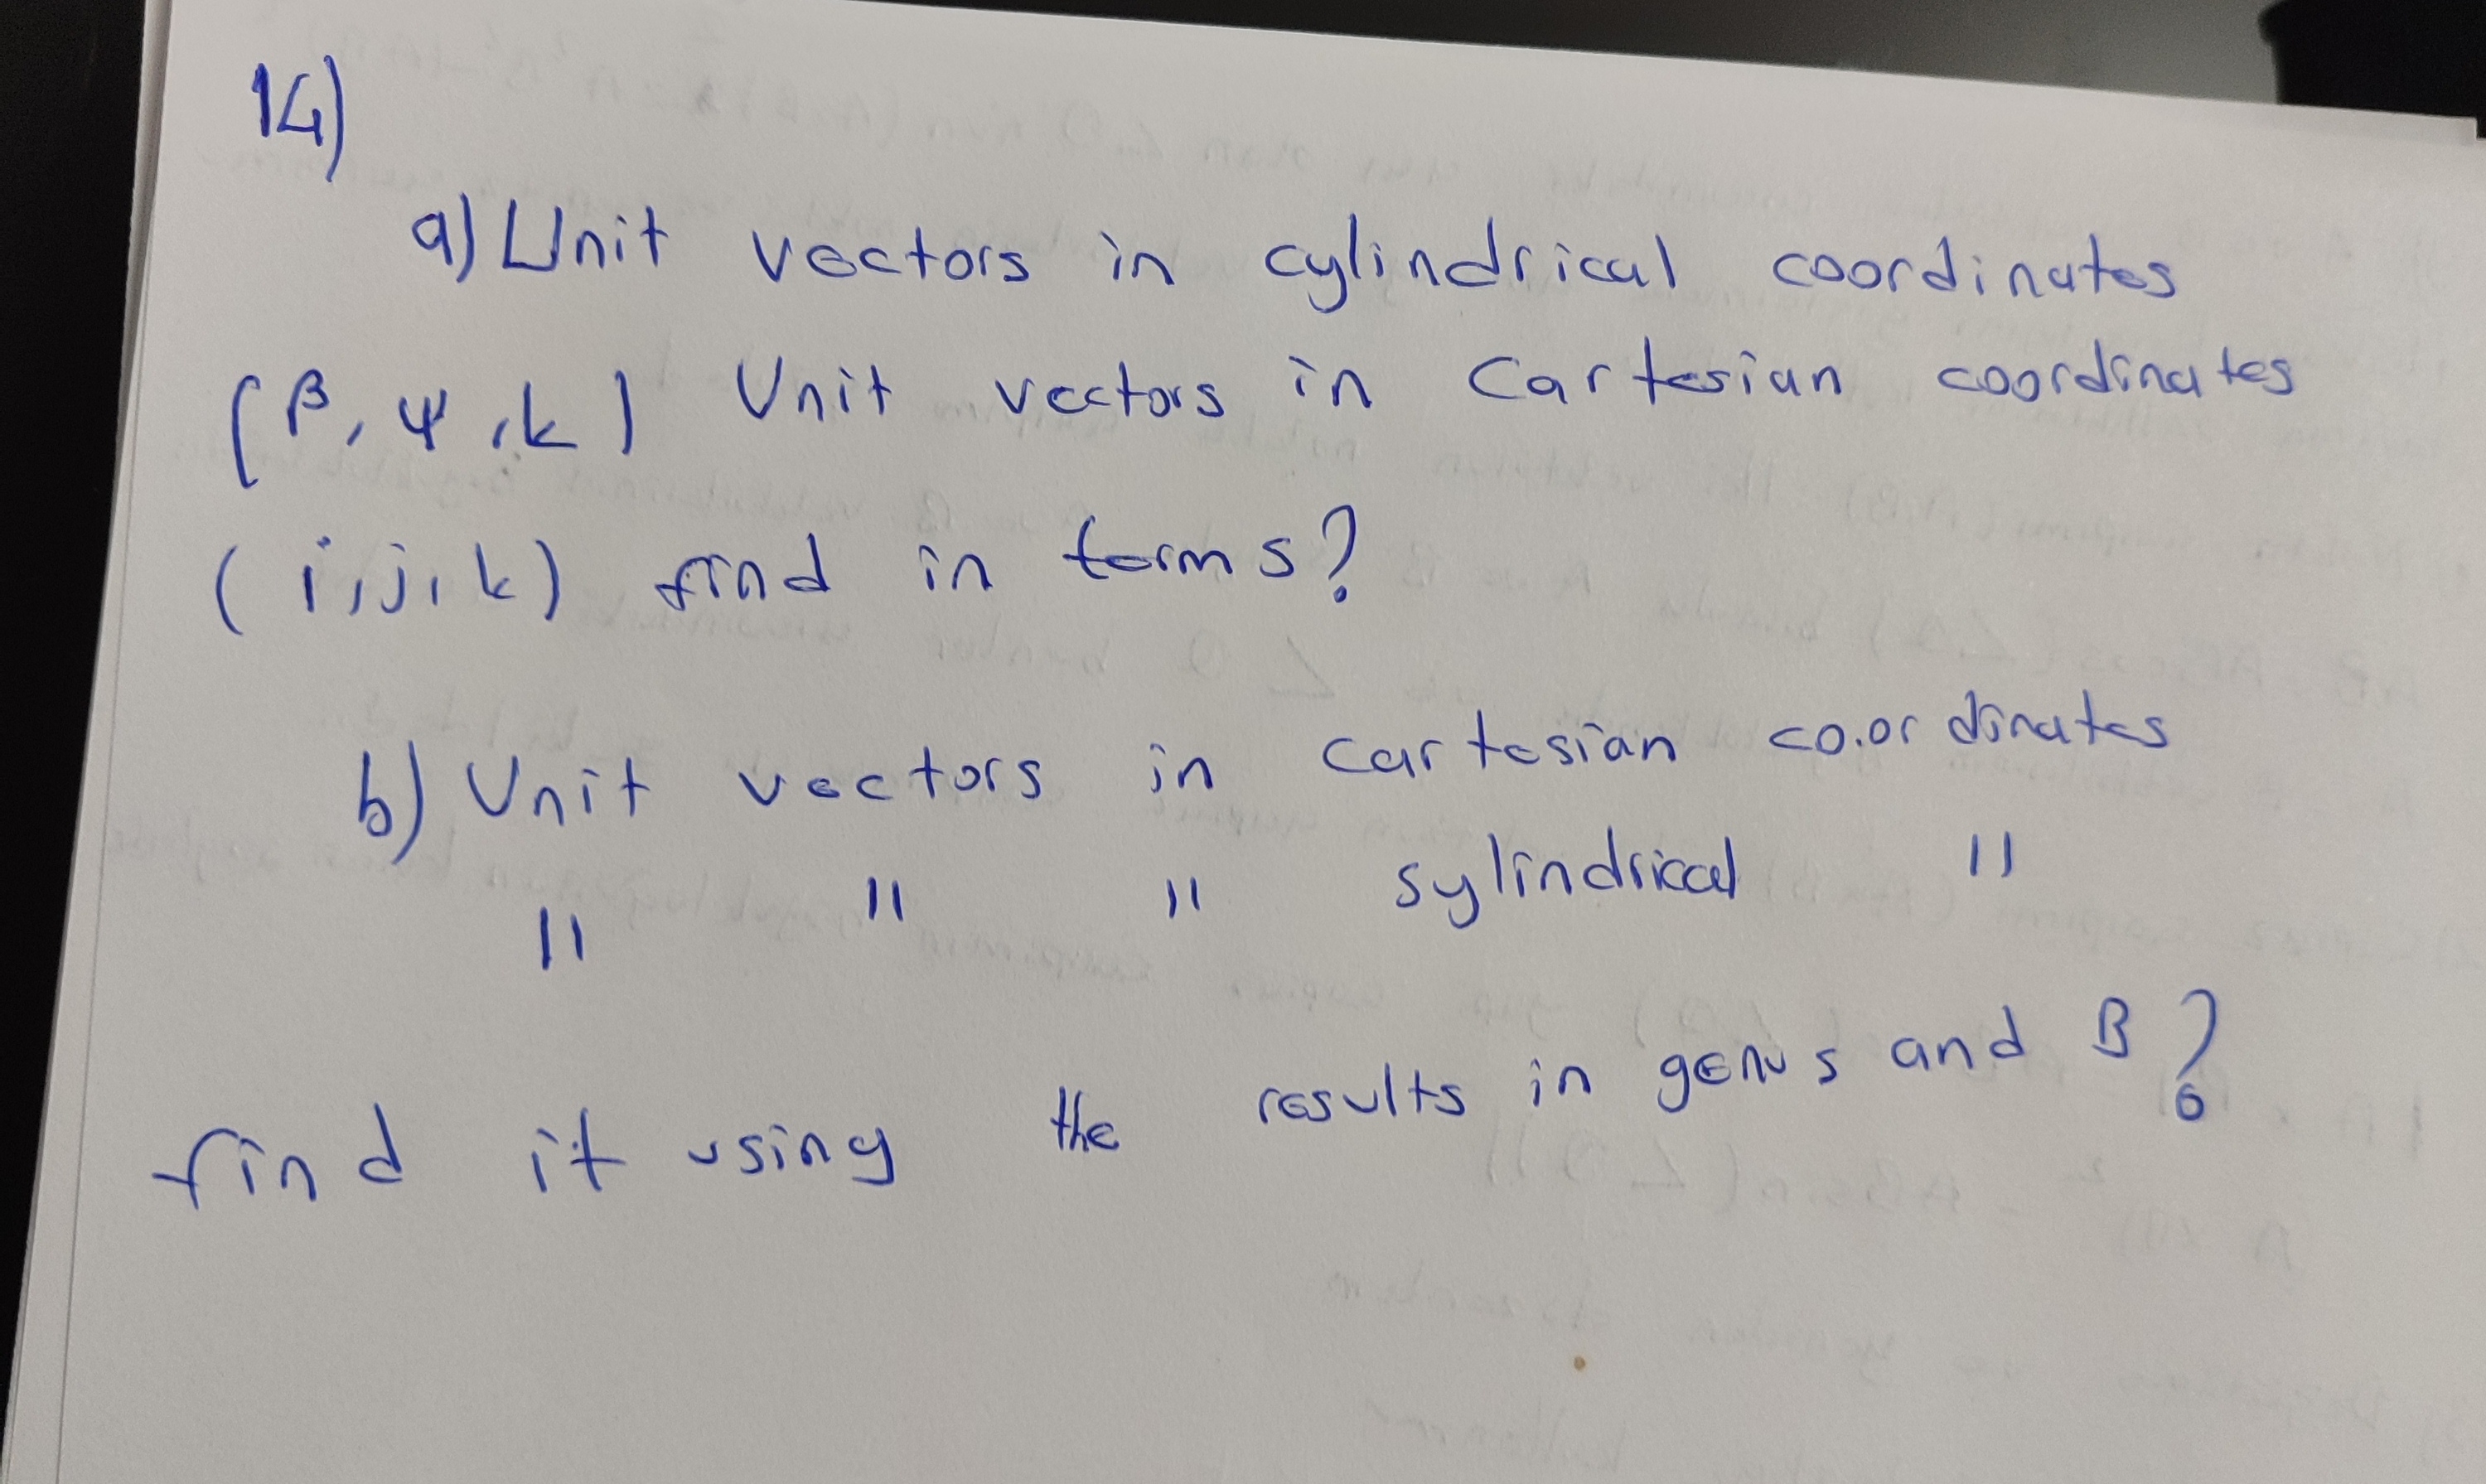 14)
a) Unit vectors in cylindrical coordinates
(β, ψ, k) Unit vectors in Cartesian coordinates
(i, j, k) find in terms?
b) Unit vectors in cartesian coordinates
" " " sylindrical "
find it using the results in genus and B?